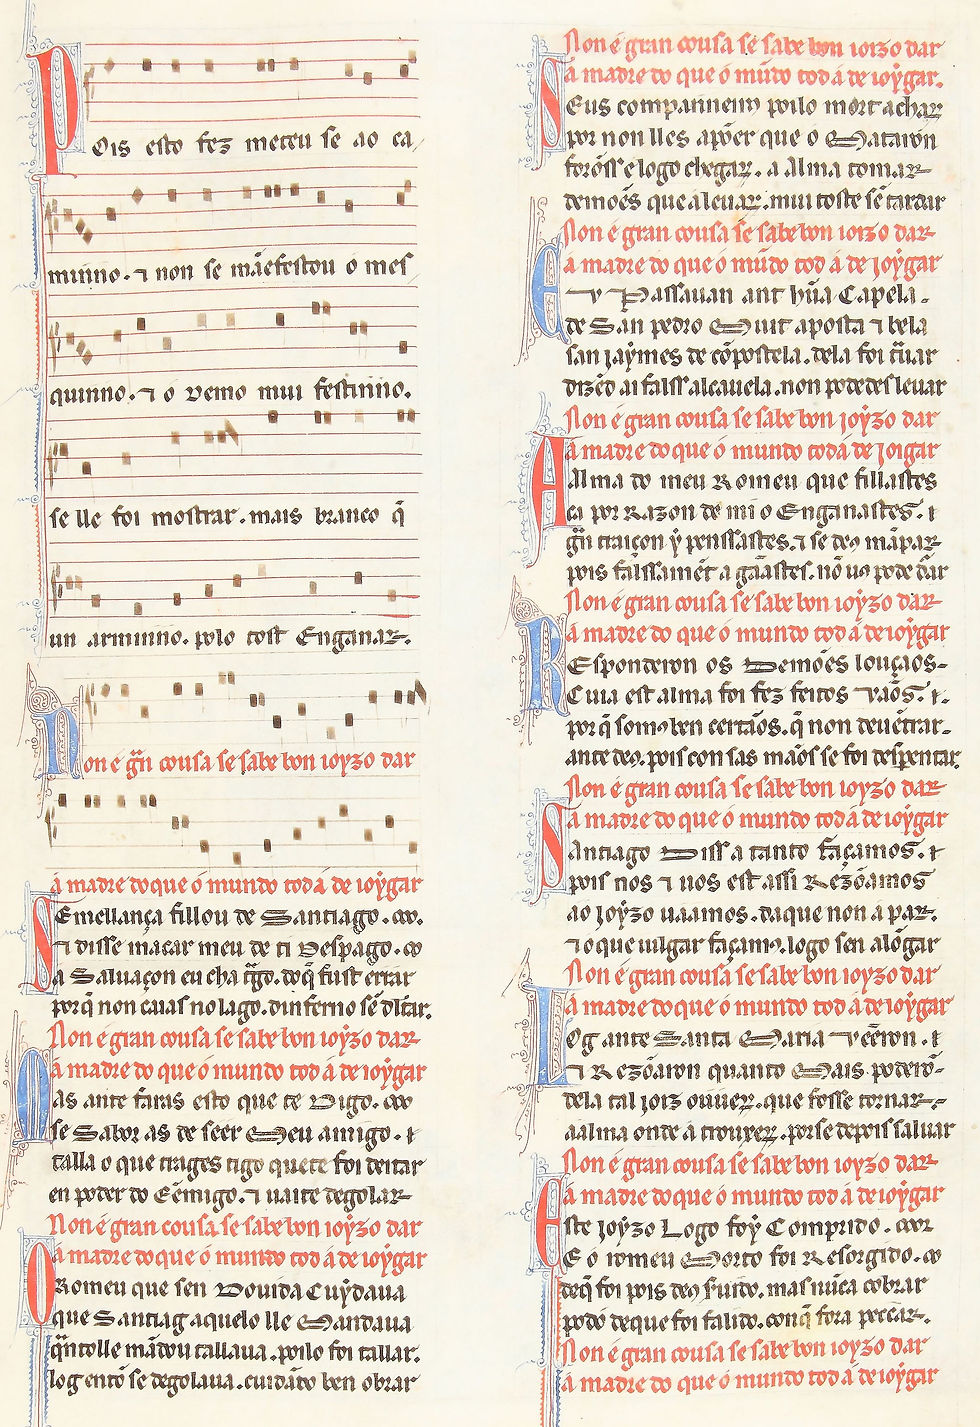 POis esto fez meteu se ao ca
minno. ⁊ non se mãefestou o mes
quinno. ⁊ o demo mui festinno.
se lle foi mostrar. mais branco q̃
un arminno. polo tost Enganar.
Non é grã cousa se sabe bon ioyzo dar
á madre do que o mundo tod á de ioygar
SEmellança fillou de Santiago.
⁊ disse macar meu de ti Despago.
a Saluaçon eu cha trago. do q̃ fust errar
por q̃ non caias no lago. dinferno sẽ dltar.
Non é gran cousa se sabe bon ioyzo dar
á madre do que o mundo tod á de ioygar
MAs ante farás esto que te Digo.
se Sabor ás de seer Meu amigo. ⁊
talla o que trages tigo que te foi deitar
en poder do Eẽmigo. ⁊ uaite degolar
Non é gran cousa se sabe bon ioyzo dar
á madre do que o mundo tod á de ioygar
ORomeu que sen Douida Cuydaua
que Santiag aquelo lle Mandaua
q̃nto lle mãdou tallaua. poilo foi tallar.
log entõ se degolaua. cuidãdo ben obrar
Non é gran cousa se sabe bon ioizo dar
á madre do que o mũdo tod á de ioygar.
SEus companneiros poilo mort achar
por non lles apõer que o Mataron
forõss e logo chegar. a Alma tomar
demões que a leuar. mui toste sẽ tardar
Non é gran cousa se sabe bon ioizo dar
á madre do que o mũdo tod á de ioygar
E U Passauan ant hũa Capela.
de San pedro Muit aposta ⁊ bela
san james de cõpostela. dela foi trãuar
dizẽd ai falss alcauela. non podedes leuar
Non é gran cousa se sabe bon joyzo dar
á madre do que o mundo tod á de joigar
AAlma do meu Romeu que fillastes
ca por Razon de mi o Enganastes. ⁊
grã traiçon y penssastes. ⁊ se deꝰ mãpar
pois falssamẽt a gãastes. nõ uꝰ pode dãr
Non é gran cousa se sabe bon ioyzo dar
á madre do que o mundo tod á de ioygar
REsponderon os Demões louçãos.
Cuia est alma foi fez feitos Uãos. ⁊.
por q̃ somꝰ ben certãos. q̃ non deu ẽtrar.
ante deꝰ. pois con sas mãos se foi despentar
Non é gran cousa se sabe bon ioyzo dar
á madre do que o mundo tod á de ioygar
SAntiago Diss a tanto façamos. ⁊
pois nos ⁊ uos est assi Rezõamos
ao joyzo uaamos. da que non á par.
⁊ o que iulgar façamꝰ. logo sen alõgar
Non é gran cousa se sabe bon ioyzo dar
á madre do que o mundo tod á de ioygar
LOg ante Santa Maria Uẽeron. ⁊
⁊ Rezõaron quanto Mais poderõ.
dela tal joiz ouuer. que fosse tornar
a alma onde a trouxer. por se depois saluar
Non é gran cousa se sabe bon ioyzo dar
á madre do que o mundo tod á de ioygar
Este joyzo Logo foy Comprido.
E o romeu Morto foi Resorgido.
de q̃ foi pois deꝰ seruido. mas nũca cobrar
podo de que foi falido. con q̃ fora peccar.
Non é gran cousa se sabe bon ioyzo dar
á madre do que o mundo tod á de ioygar